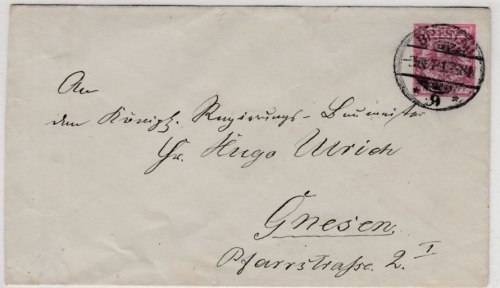 An
den Königl. Regierungs-Baumeister
Hr. Hugo Ulrich
Gnesen.
Pfarrstraße 2. I
9